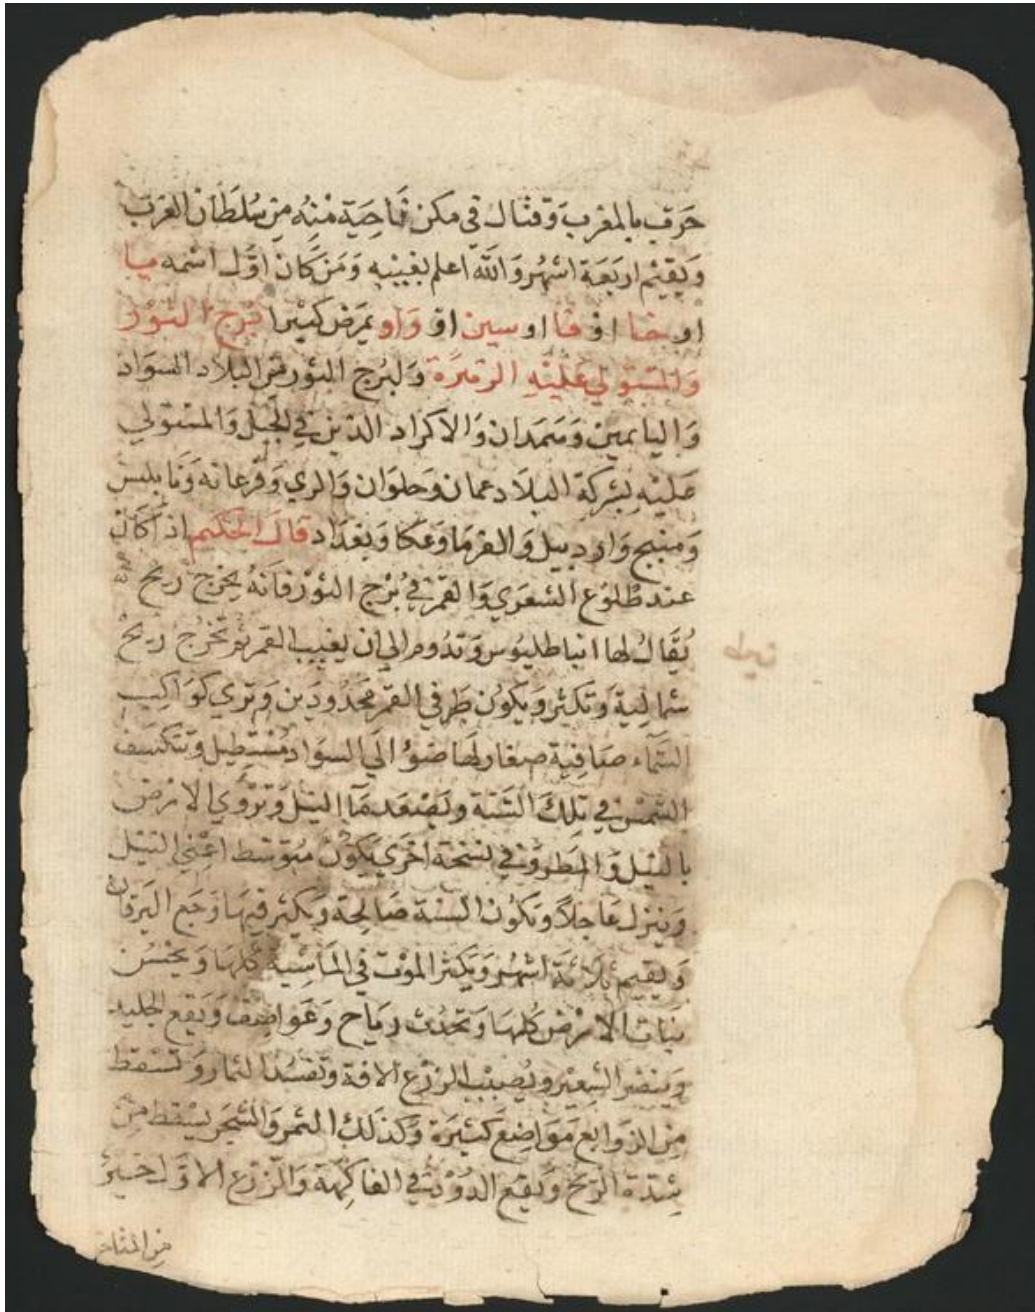 حرب بالمغرب وقتال في مكن ناحية منه من سلطان الغرب
ويقيم اربعة اشهر والله اعلم بغيبه ومن كان اول اسمه ميا
او خا او فا او سين او واو يمرض كثيرا برج الثور
والمستولي عليه الزهرة ولبرج الثور من البلاد السواد
والياىمين وهمدان والاكراد الذين في الجبل والمستولي
عليه بشركة البلاد عمان وحلوان والري وفرعانه ونابلس
ومنبج واردبيل والفرما وعكا وبغداد قال الحكيم اذا كان
عند طلوع الشعري والقمر في برج الثور فانه يخرج ريح
يقال لها انياطليوس وتدوم الي ان يغيب القمر ثم تخرج ريح
شمالية وتكثر ويكون طرفي القمر محدودين وتري كواكب
السماء صافية صغار لها ضوء الي السواد مستطيل وتنكسف
الشمس في تلك السنة ويصعد ماء النيل وتروي الارض
بالنيل والمطر وفي نسخة اخري يكون متوسط اعني النيل
وينزل عاجلا وتكون السنة صالحة ويكثر فيها وجع اليرقان
ويقيم ثلاثة اشهر ويكثر الموت في الماشية كلها ويحسن
نبات الارض كلها وتحدث رياح وعواصف ويقع الجليد
ويضر الشعير ويصيب الزرع الافة وتفسد الثمار وتسقط
من الزوابع مواضع كثيرة وكذلك الثمر والشجر يسقط من
شدة الريح ويقع الدود في الفاكهة والزرع الاول خير
من المتاخر